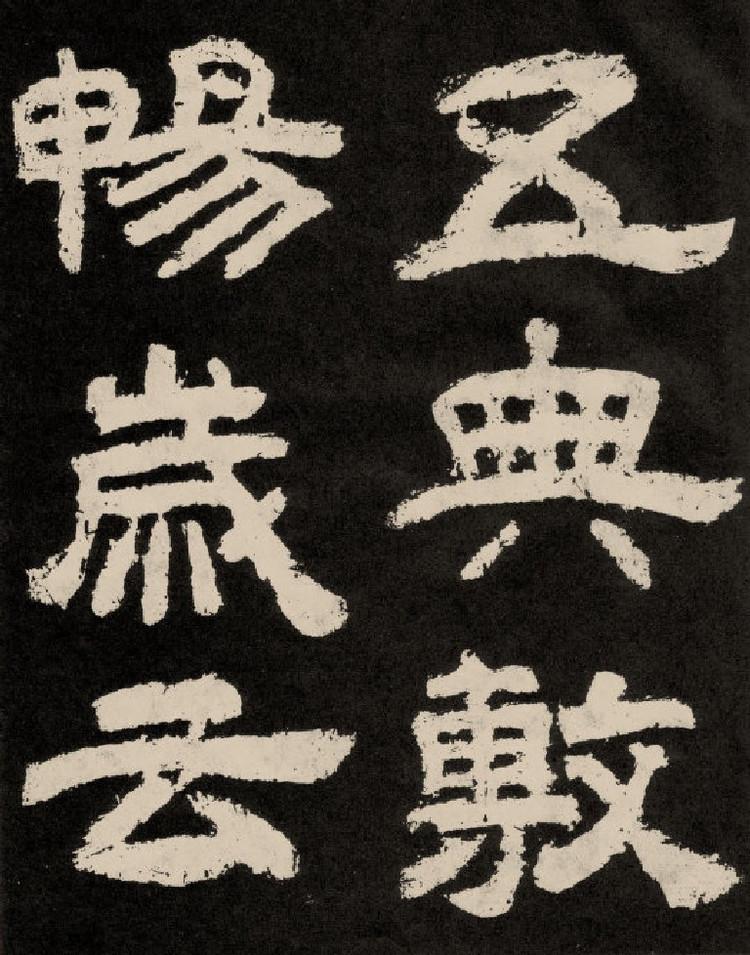 五典敷
暢歲云